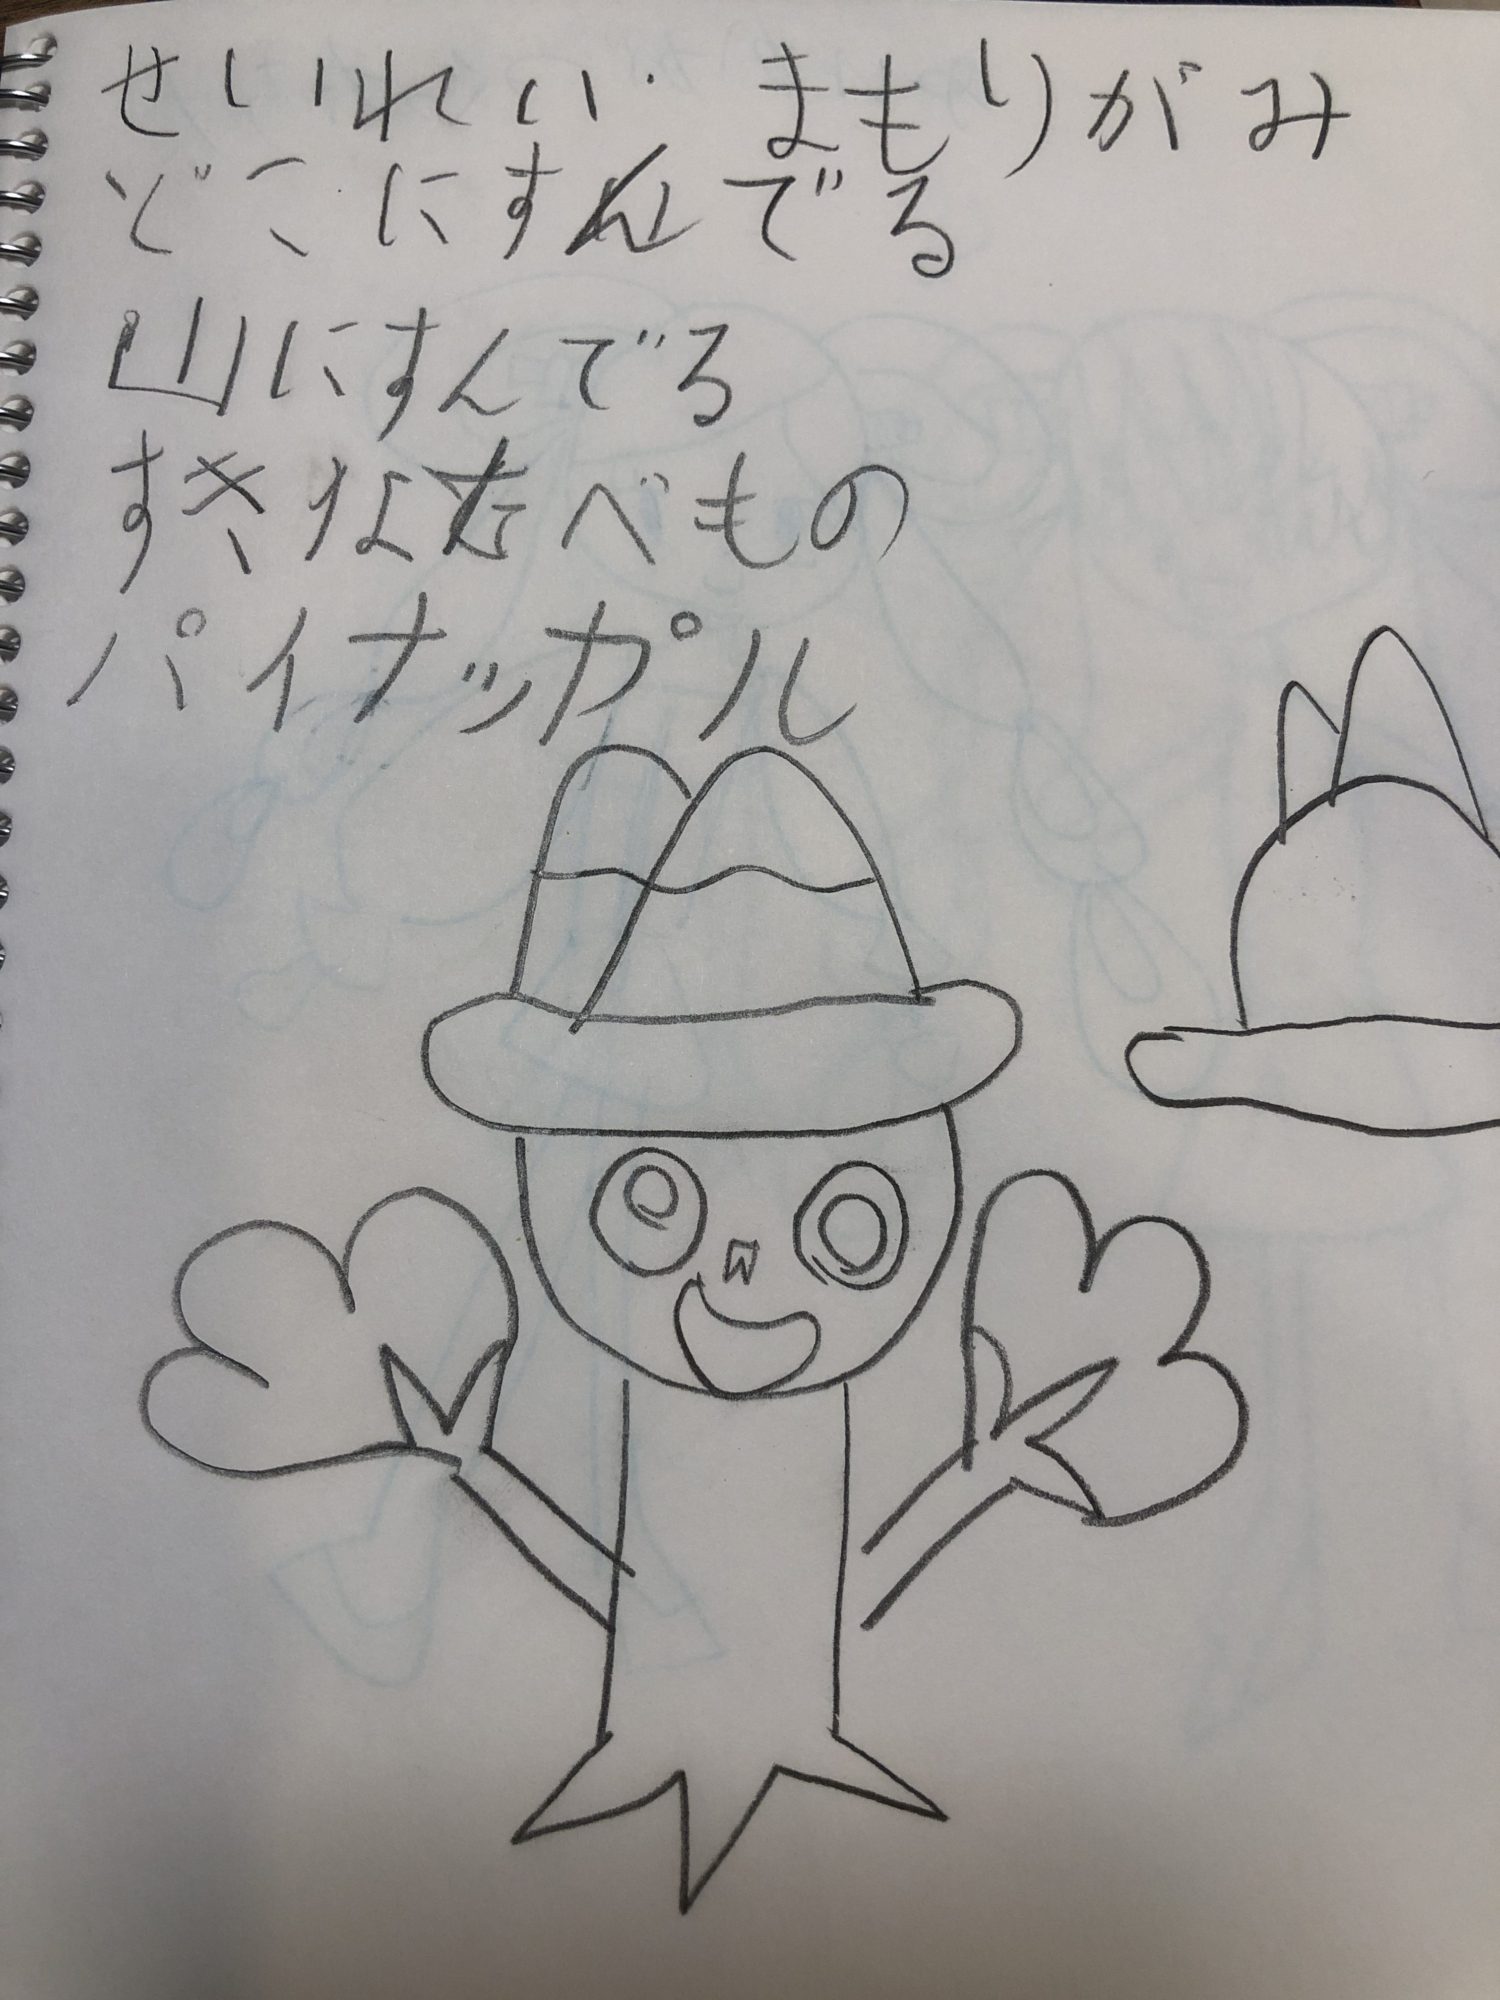 せいれい・まもりがみ
どこにすんでる
山にすんでる
すきなたべもの
パイナップル